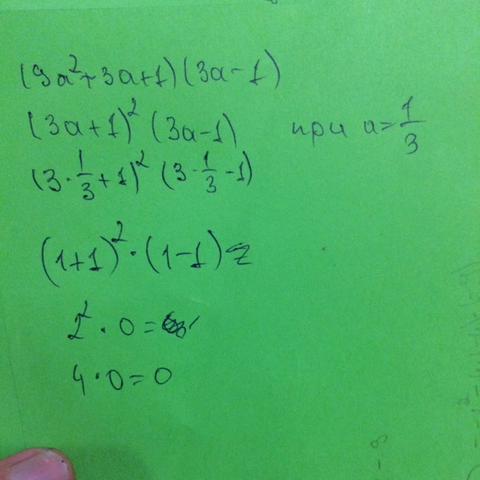 (9a²+3a+1)(3a-1)
(3a+1)² (3a-1) при a=1/3
(3·1/3+1)² (3·1/3-1)
(1+1)²·(1-1)=
2²·0=
4·0=0